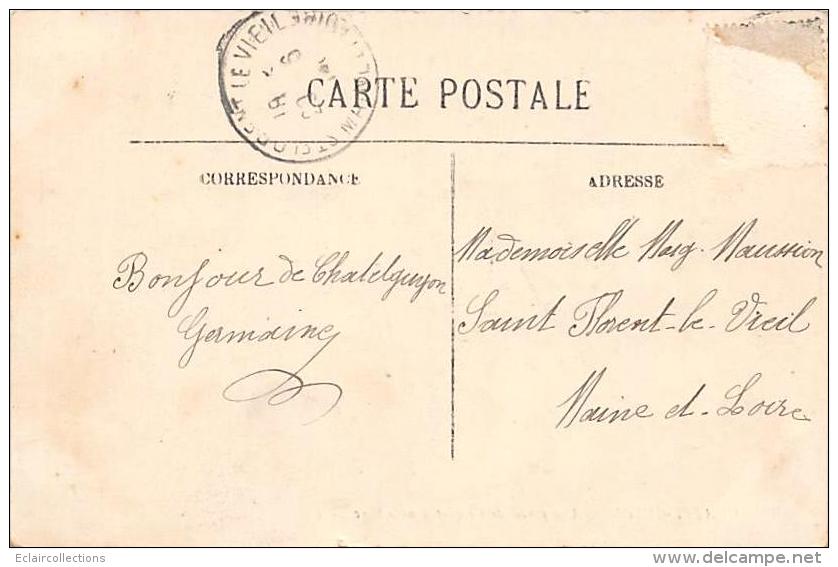 ST FLORENT LE VIEIL
CARTE POSTALE
CORRESPONDANCE
ADRESSE
Bonjour de Chatelguyon
Germaine
Mademoiselle Marg. Maussion
Saint Florent-le-Vieil
Maine et-Loire
Eclaircollections
www.delcampe.net